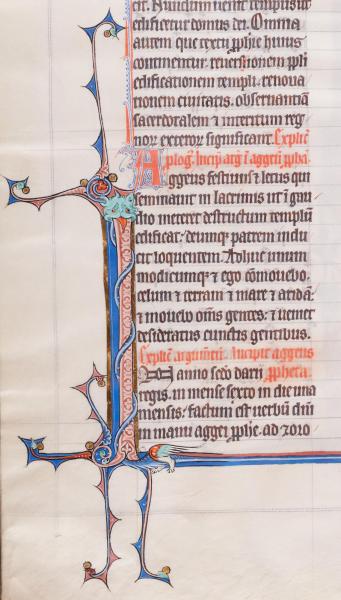 edificetur domus dei. Omnia
autem que textꝰ ꝓphie huius
continent. reuersionem ppli
edificationem templi. renoua
tionem ciuitatis. obseruantiā
sacerdotalem & interitum reg
significant. Explic̄
plog. Incip̄ arḡ ī aggeū ꝓpha.
Aggeus festiuus & letus qui
seminauit in lacrimis ut ī gau
dio meteret destructum templū
edificat. deumqꝫ patrem indu
cit loquentem. Adhuc unum
modicumqꝫ & ego cōmouebo
celum & terram & mare & aridā.
& mouebo oms̄ gentes. & ueniet
desideratus cunctis gentibus.
Explic̄ argumentū. Incipit aggeus
anno scdō darii ꝓpheta.
regis. in mense sexto in die una
mensis. factum est uerbū dn̄i
in manu aggei ꝓphe. ad zoro